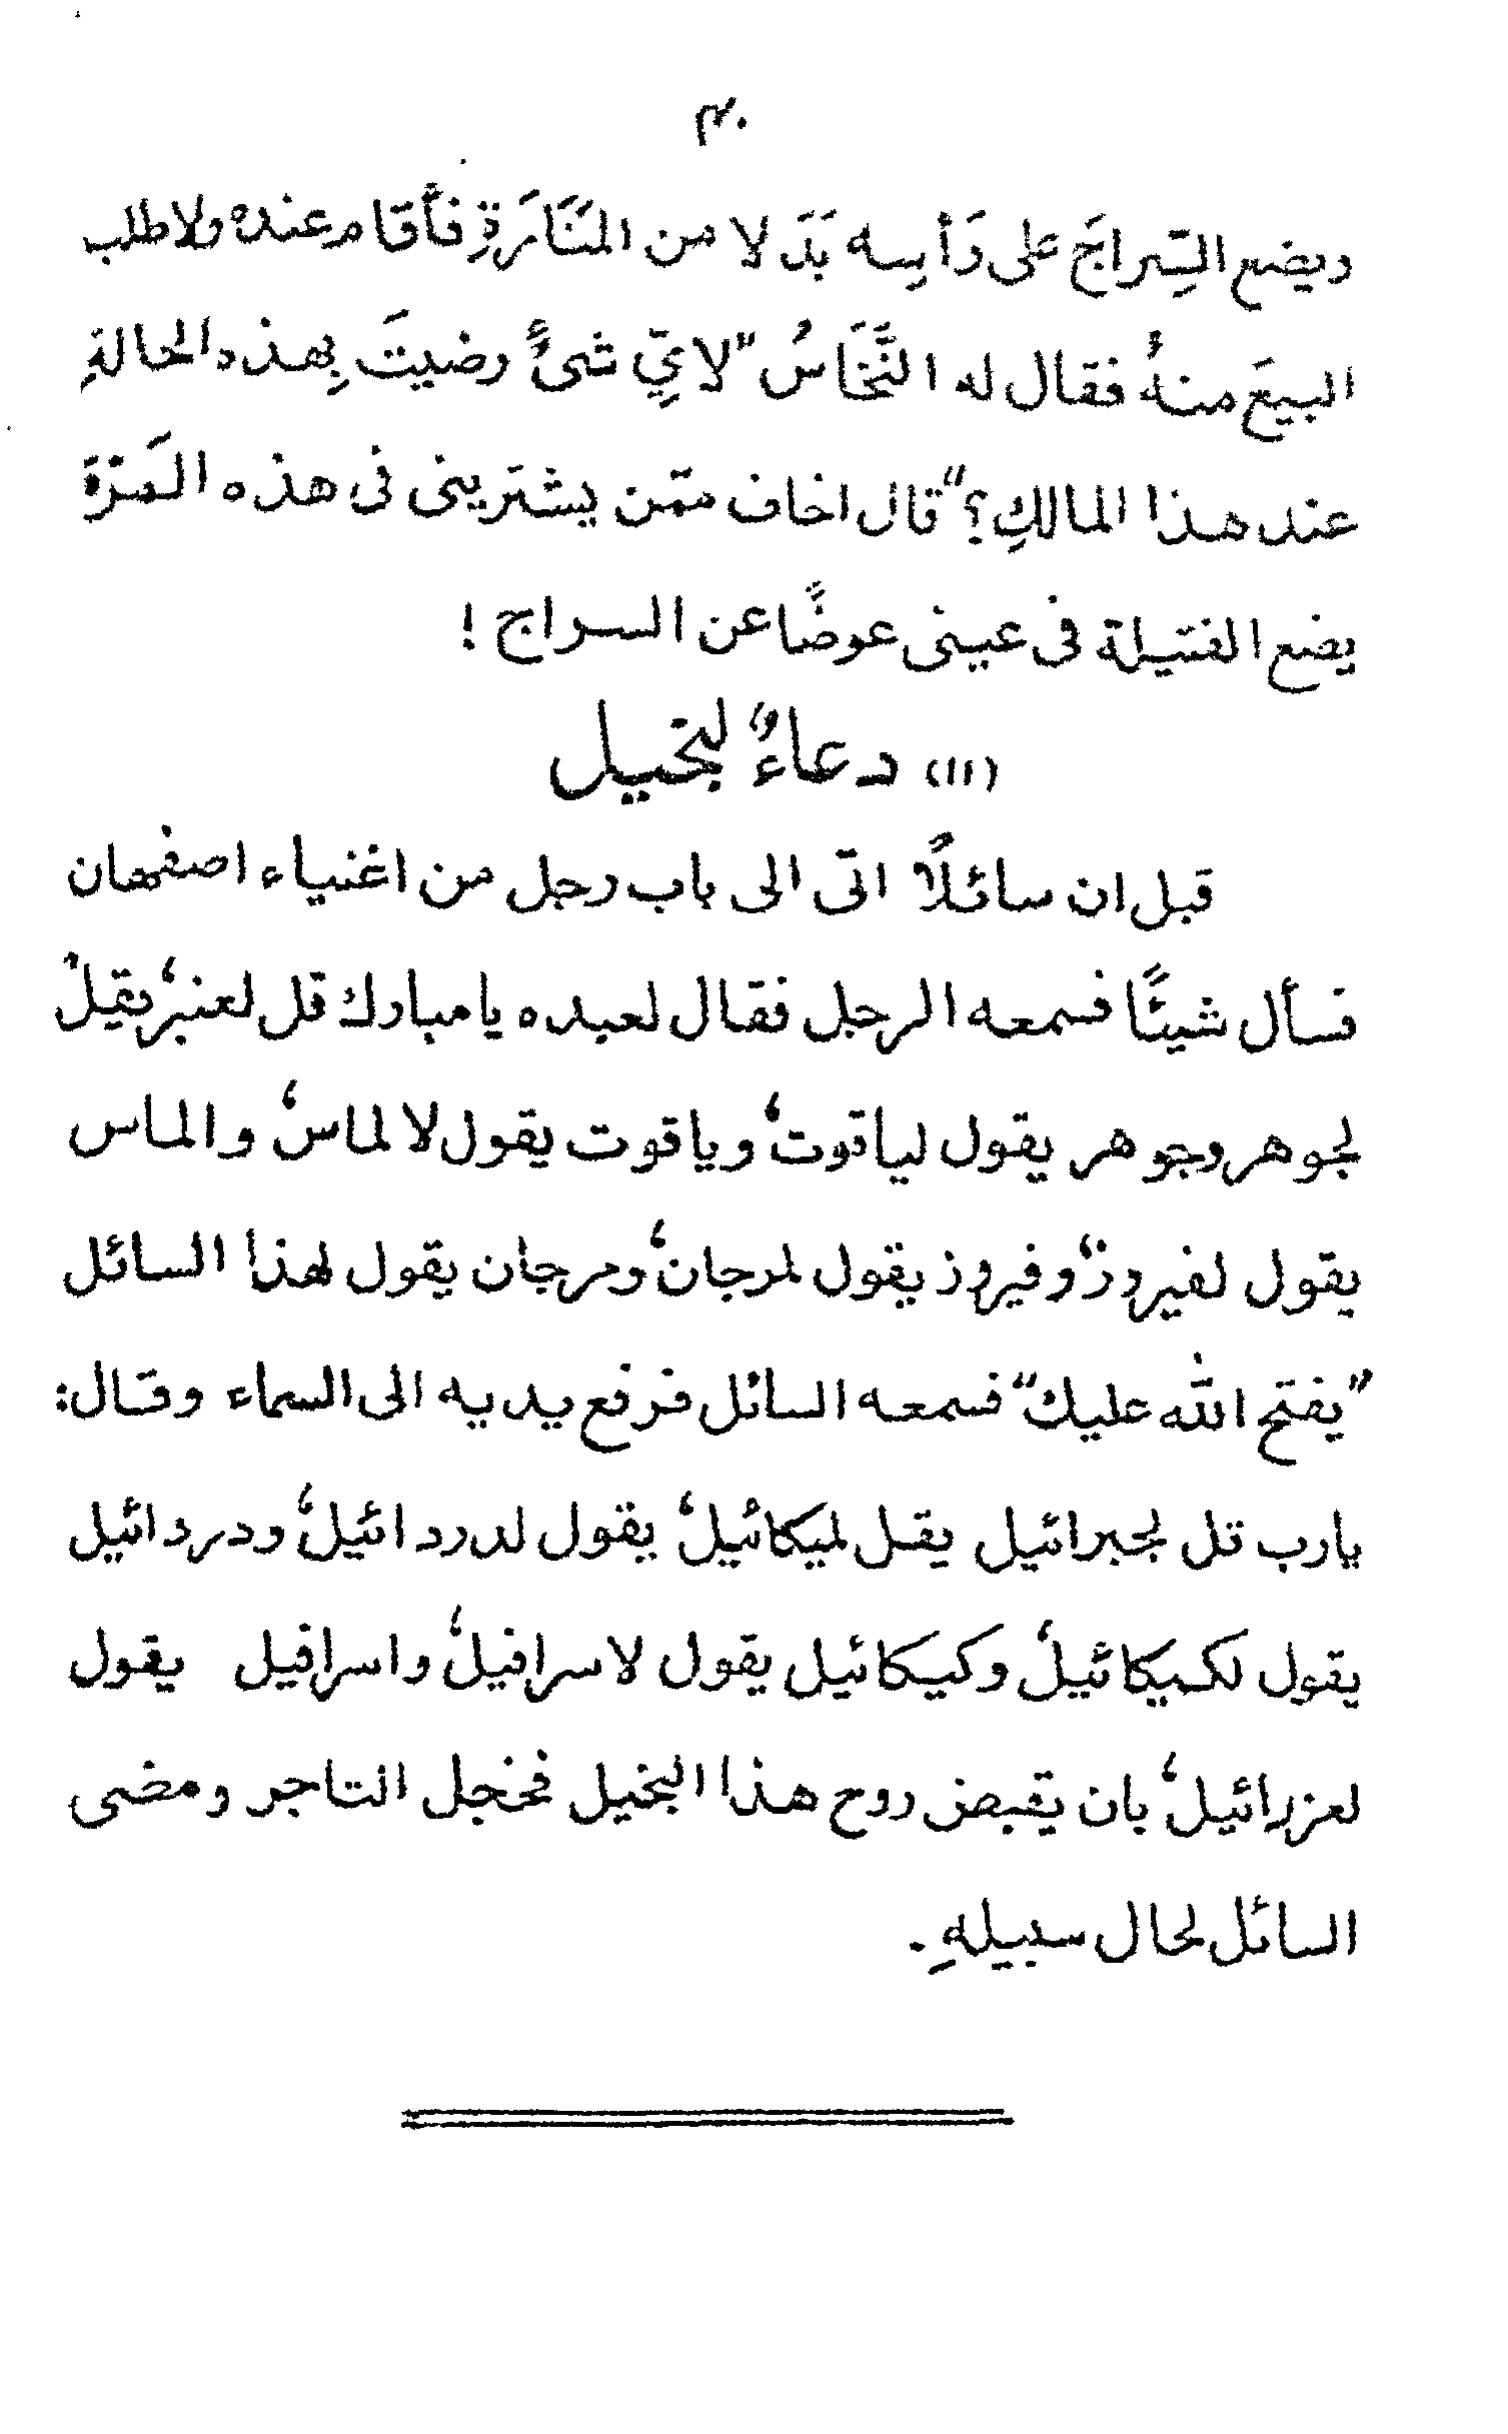 ۴۰
ويضع السِّراجَ على رَأسِه بَدَلا من المَنَارَةِ فأقام عنده ولا طلب
البيعَ منهُ فقال له النَّخَّاسُ "لايِّ شىءٍ رضيتَ بِهذه الحالةِ
عند هذا المالكِ؟" قال اخاف ممّن يشتريني فى هذه المَرّة
يضع الفتيلة فى عينى عوضًا عن السراج !
(۱۱) دعاءٌ لبخيل
قيل ان سائلًا اتى الى باب رجل من اغنياء اصفهان
فسأل شيئًا فسمعه الرجل فقال لعبده يا مبارك قل لعنبر، يقيلْ
لجوهر وجوهر يقول لياقوت، وياقوت يقول لالماس، والماس
يقول لفيروز، وفيروز يقول لمرجان، ومرجان يقول لهذا السائل
"يفتح الله عليك" فسمعه السائل فرفع يديه الى السماء وقال:
يارب قل لجبرائيل يقل لميكائيل، يقول لدردائيل، ودردائيل
يقول لكيكائيل، وكيكائيل يقول لاسرافيل، واسرافيل يقول
لعزرائيل، بان يقبض روح هذا البخيل فخجل التاجر ومضى
السائل لحال سبيلهِ.